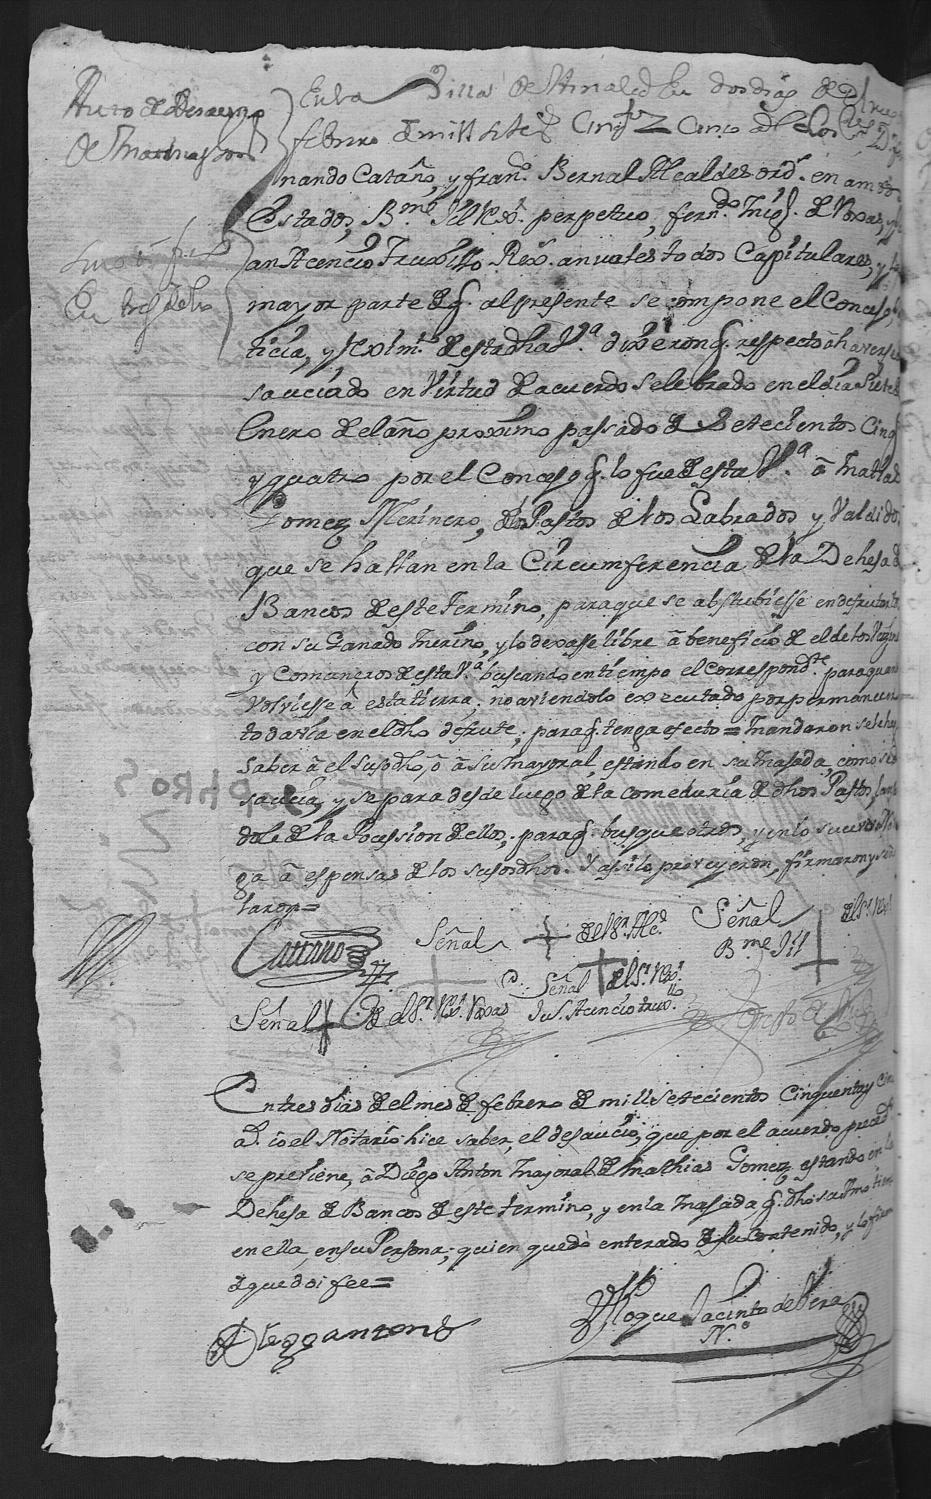 Auto de Desaucio
de
En la Villa de dos dias de
febrero de mill sete.s Cinq.ta Z Cinco
nando Cataño, y fran.co Bernal Alcaldes ord.s en ambos
Estados, B.me Gil Rex.r perpetuo, fern.do de Roxas, y
an Acencio Truxillo Rex.r anuales todos Capitulares, y la
mayor parte de q.e al presente se compone el Concejo,
ticia, y Reximt.o de esta dha V.a dixeron q.e respecto â haverse
sauciado en Virtud de acuerdo selebrado en el dia siete de
Enero de el año proximo passado de Setecientos Cinq.ta
y quatro por el Concejo q.e lo fue de esta V.a â Mathias
Gomez Merinero, de los Pastos de los Labrados y Valdidos
que se hallan en la Circumferencia de la Dehesa de
Bancos de este termino, para que se abstubiesse en disfrutarlos
con su Ganado merino, y lo dexasse libre â beneficio de el de los Vezinos
y Comuneros de esta V.a buscando en tiempo el correspond.te para quando
Volviesse â esta tierra; no aviendolo executado por permanecer
todavia en el dho disfrute; para q.e tenga efecto = Mandaron se le haga
saber â el susodho, ô â su mayoral, estando en su majada, como se de
saucia, y separa desde luego de la comeduria de dhos Pastos, lanzan
dole de la Posession de ellos; para q.e busque otros, y en lo sucesivo
ga â espensas de los susodhos. Y assi lo proveyeron, firmaron y seña
laron =
Cataño Señal + de el S.r Alc.e Señal + de el S.r Rex.r
B.me Gil
Señal + de el S.r Rex.r Roxas Señal + de el S.r Rex.r
Ju.o Acencio trux.llo
En tres dias de el mes de febrero de mill setecientos Cinquenta y Cinco
a.s io el Notario hice saber, el desaucio, que por el acuerdo preced.te
se previene, â Diego Anton mayoral de Mathias Gomez estando en la
Dehesa de Bancos de este termino, y en la majada q.e dho su Amo tiene
en ella, en su Persona; quien quedò enterado de su Contenido, y lo firmò
de que doi fee =
Diego anton Roque Jacinto de Vera
N.o